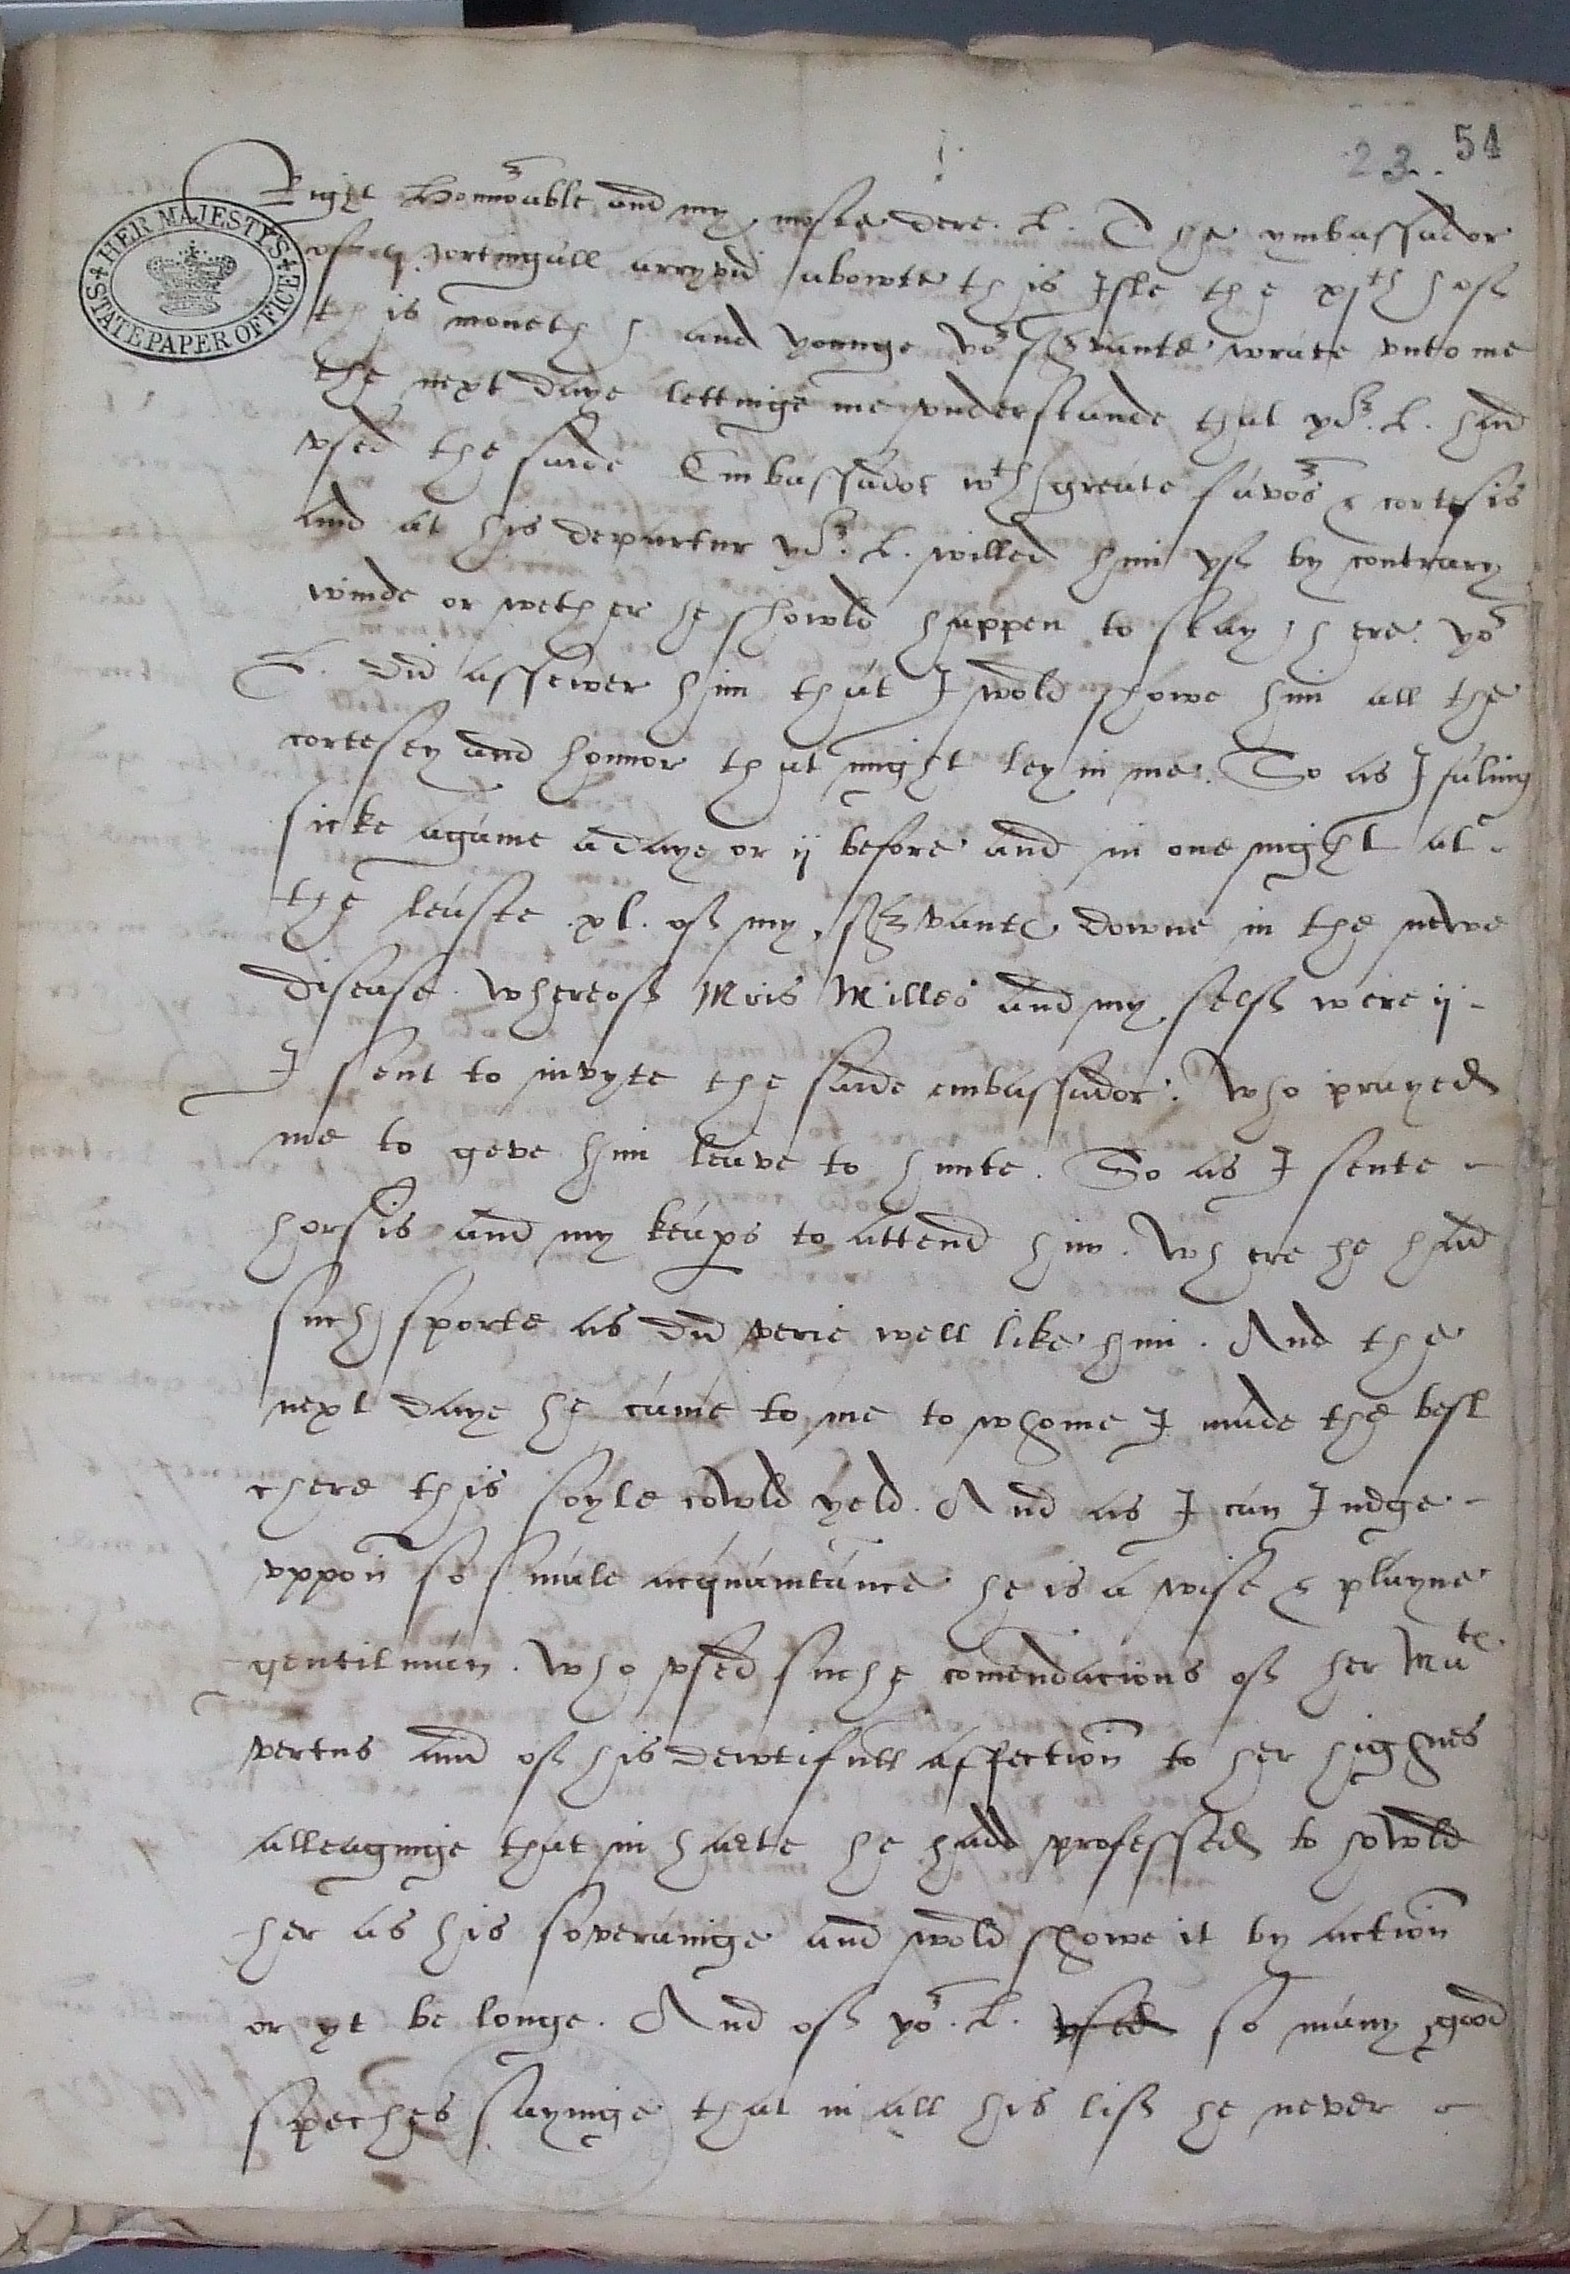 23. 54
HER MAJESTY'S STATE PAPER OFFICE
Right honnorable and my moste dere. L. The ymbassador
of portingall arryvid abowte this Isle the xjth hof
this moneth and younge yor servante wrate vnto me
the next daye lettinge me vnderstande that yor. L. had
vsed the saide Embassador wth greate favor & cortesis
and at his departur yor. L. willed him yf by contrary
winde or wether he showld happen to stay here. yor
L. did assewer him that I wold showe him all the
cortesey and honnor that might ley in me. So as I faling
sicke againe a daye or ij before and in one night at
the leaste .xl. of my servants downe in the newe
disease. whereof Mris Milles and my self were ij
I sent to invyte the saide embassador. Who prayed
me to geve him leave to hunte. So as I sente
horsis and my keapers to attend him. Where he had
such sporte as did verie well like him. And the
next daye he came to me to whome I made the best
chere this soyle cowld yeld. And as I can Iudge
vppon so smale acquaintance he is a wise & playne
gentilman. Who vsed suche comendacions of her Matie
vertus and of his dewtifull affection to her highnes
alleaginge that in harte he hadd professed to howld
her as his soverainge and wold showe it by action
or yt be longe. And of yor. L. vsed so many good
speches sayinge that in all his lif he never